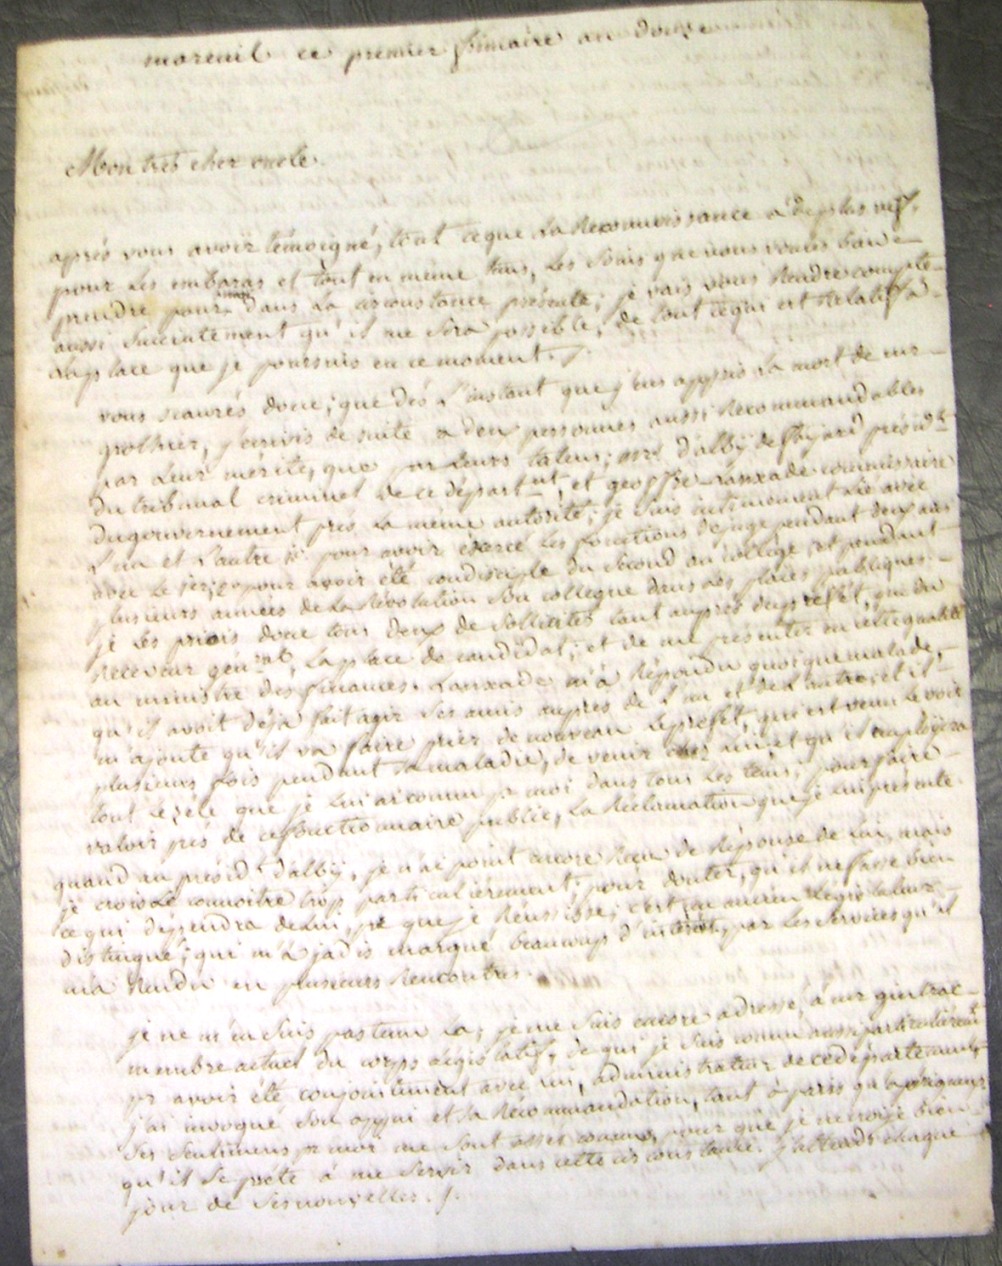 mareuil ce premier frimaire an douze
Mon très cher oncle.
après vous avoir témoigné, tout ce que la Reconnoissance a de plus vif,
pour les embaras et tout en même tems, les soins que vous voulés bien
prendre pour moi dans la circonstance présente; je vais vous Rendre compte
aussi succintement qu'il me sera possible, de tout ce qui est Relatif à
la place que je poursuis en ce moment. /.
vous scaurés donc, que dès l'instant que j'eus appris la mort de mr
grolhier, j'écrivis de suite a deux personnes aussi Recommandables
par leur mérite, que par leurs talens; mrs d'alby de présidt
du tribunal criminel de ce départmt, et geoffre Lanxade commissaire
du gouvernement près la même autorité; je suis intimement lié avec
l'un et l'autre pr pour avoir éxercé les fonctions de juge pendant deux ans
avec le 1er, et pour avoir été condisciple du second au collège, et pendant
plusieurs années de la Révolution son collegue dans des places publiques.
je les priois donc tous deux de solliciter tant auprès du préfet, que du
Receveur génral, la place de candidat; et de me présenter en cette qualité
au ministre des finances. Lanxade m'a Répondu quoique malade,
qu'il avoit déja fait agir ses amis auprès de l'un et de l'autre, et il
m'ajoute qu'il va faire prier de nouveau le préfet, qui est venu le voir
plusieurs fois pendant sa maladie, de venir chés lui, et qu'il employera
tout le zéle que je lui ai connu pr moi dans tous les tems, pour faire
valoir près de ce fonctionnaire public, la Réclamation que je lui présente.
quand au présidt d'alby, je n'ai point encore Reçu de Réponse de lui, mais
je crois le connoitre trop particulièrement, pour douter, qu'il ne fasse bien
ce qui dépendra de lui, pr que je Réussisse; c'est un ancien Législateur
distingué, qui m'a jadis marqué beaucoup d'intérêt, par les services qu'il
m'a Rendu en plusieurs Rencontres.
je ne m'en suis pas tenu là; je me suis encore adressé, à mr gintrac
membre actuel du corps Législatif, de qui je suis connu aussi particulièremt
pr avoir été conjointement avec lui, administrateur de ce département,
j'ai invoqué son appui et sa Récommandation, tant à paris qu'a périgueux
ses sentimens pr moi me sont assés connus, pour que je ne croije bien
qu'il se prête à me servir dans cette circonstance. j'attends chaque
jour de ses nouvelles. /.